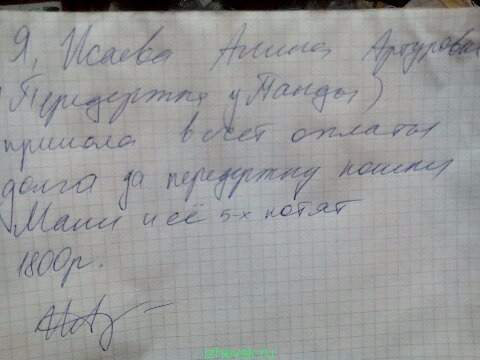 Я, Исаева Алина Артуровна
(Передержка у Панды)
приняла в счет оплаты
долга за передержку кошки
Мани и её 5-х котят
1800р.